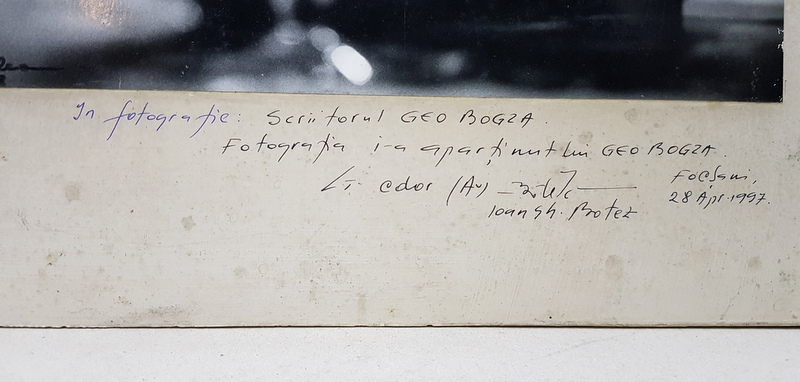 In fotografie: Scriitorul GEO BOGZA.
Fotografia i-a aparținut lui GEO BOGZA.
Lt. cdor (Av)
Ioan Gh. Botez
Focșani,
28 Apr. 1997.